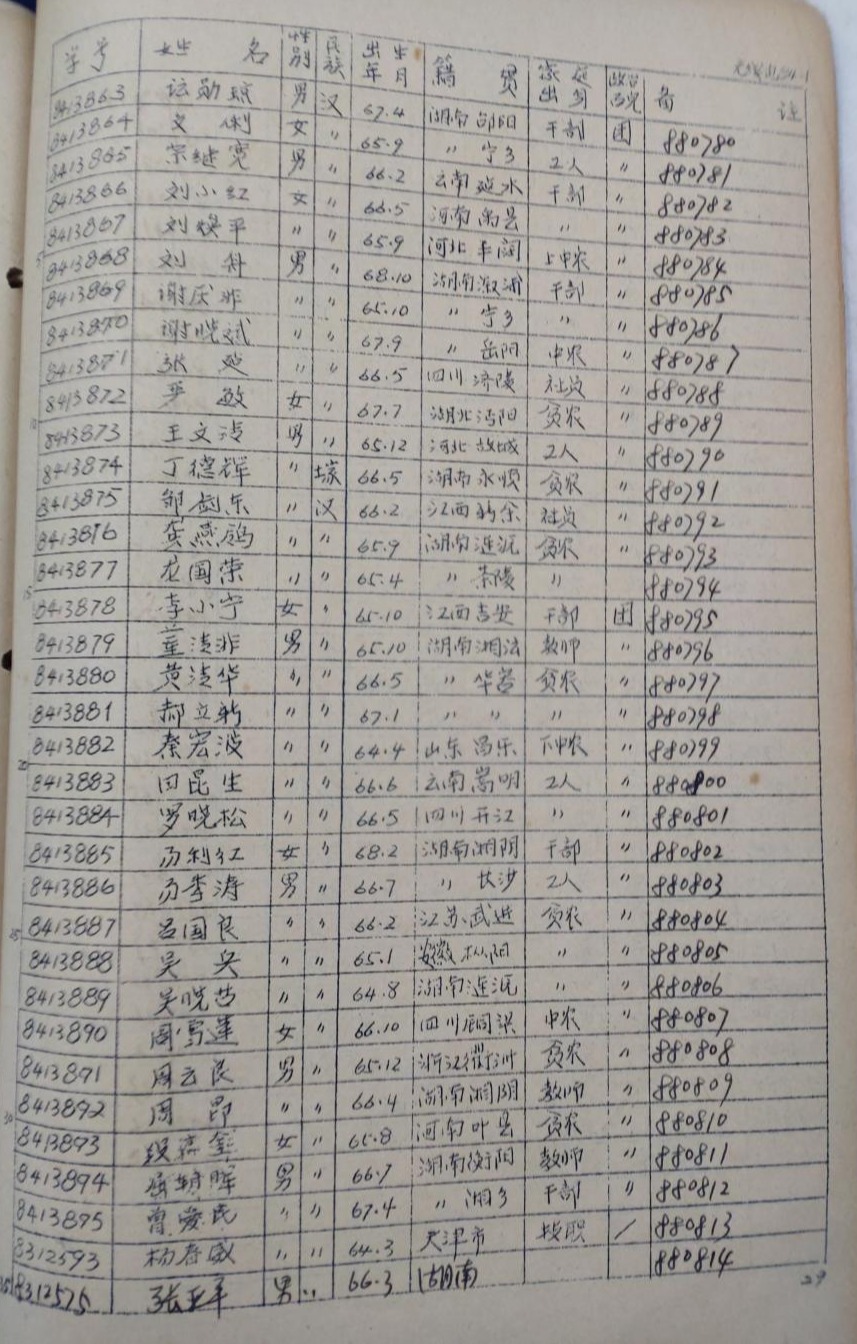 学号 姓名 性别 民族 出生年月 籍贯 家庭出身 政治面貌 备注
8413863 男 汉 67.4 湖南邵阳 干部 团 880780
8413864 文俐 女 〃 65.9 〃 宁乡 工人 〃 880781
8413865 宗继宽 男 〃 66.2 云南建水 干部 〃 880782
8413866 刘小红 女 〃 66.5 河南禹县 〃 〃 880783
8413867 刘焕平 〃 〃 65.9 河北 上中农 〃 880784
5 8413868 刘舟 男 〃 68.10 湖南溆浦 干部 〃 880785
8413869 谢厌非 〃 〃 65.10 〃 宁乡 〃 〃 880786
8413870 谢晓斌 〃 〃 67.9 〃 岳阳 中农 〃 880787
8413871 张延 〃 〃 66.5 四川涪陵 社员 〃 880788
8413872 尹敏 女 〃 67.7 湖北沔阳 贫农 〃 880789
10 8413873 王文涛 男 〃 65.12 河北故城 工人 〃 880790
8413874 丁德辉 〃 66.5 湖南永顺 贫农 〃 880791
8413875 邹剑东 〃 汉 66.2 江西新余 社员 〃 880792
8413876 龚燕鸥 〃 〃 65.9 湖南涟沅 贫农 〃 880793
8413877 龙国荣 〃 〃 65.4 〃 茶陵 〃 880794
15 8413878 李小宁 女 〃 65.10 江西吉安 干部 团 880795
8413879 童涛非 男 〃 65.10 湖南湘潭 教师 〃 880796
8413880 黄清华 〃 〃 66.5 〃 华容 贫农 〃 880797
8413881 郝立新 〃 〃 67.1 〃 〃 〃 〃 880798
8413882 秦宏波 〃 〃 64.4 山东昌乐 下中农 〃 880799
20 8413883 田昆生 〃 〃 66.6 云南嵩明 工人 〃 880800
8413884 罗晓松 〃 〃 66.5 四川开江 〃 〃 880801
8413885 汤利红 女 〃 68.2 湖南湘阴 干部 〃 880802
8413886 汤李涛 男 〃 66.7 〃 长沙 工人 〃 880803
25 8413887 吕国良 〃 〃 66.2 江苏武进 贫农 〃 880804
8413888 吴兵 〃 〃 65.1 安徽枞阳 〃 〃 880805
8413889 吴晓 〃 〃 64.8 湖南涟沅 〃 〃 880806
8413890 周雪莲 女 〃 66.10 四川铜梁 中农 〃 880807
8413891 周云良 男 〃 65.12 浙江衢州 贫农 〃 880808
8413892 周昂 〃 〃 66.4 湖南湘阴 教师 〃 880809
30 8413893 女 〃 65.8 河南叶县 贫农 〃 880810
8413894 晖 男 〃 66.7 湖南衡阳 教师 〃 880811
8413895 曾爱民 〃 〃 67.4 〃 湘乡 干部 〃 880812
8312593 杨春威 〃 〃 64.3 天津市 职 / 880813
35 8312575 张亚平 男 〃 66.3 湖南 880814
29